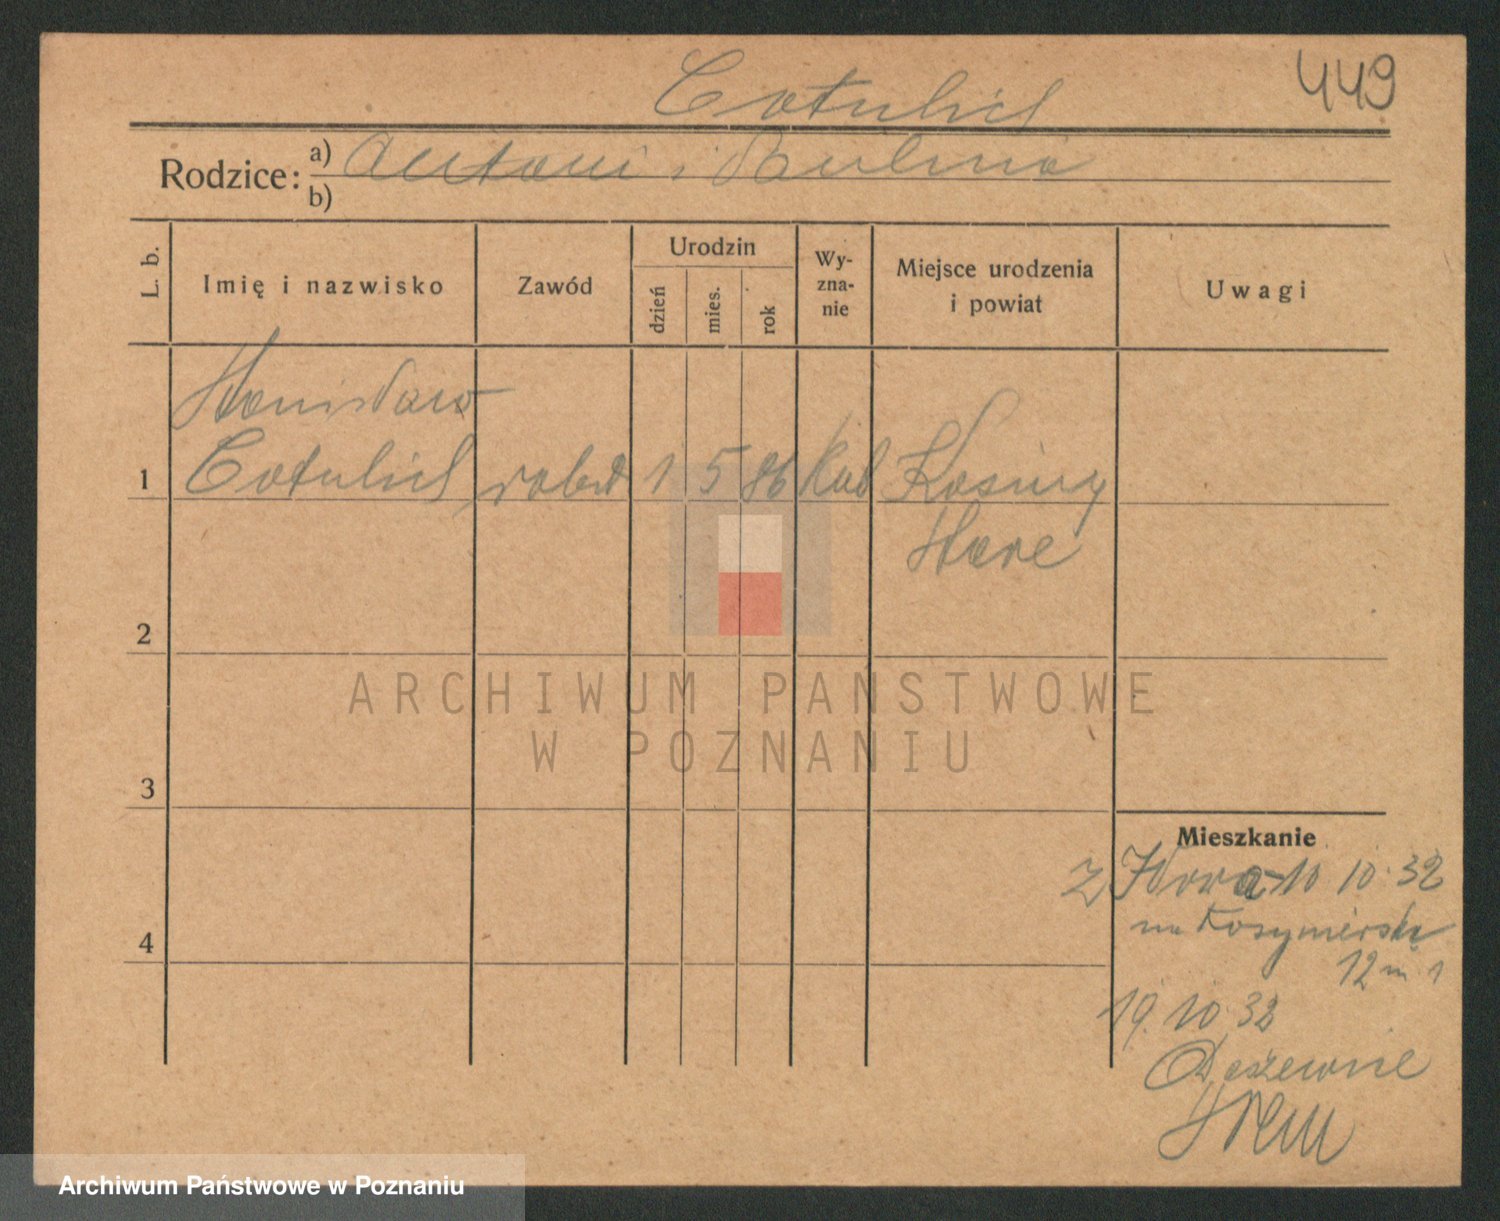 Cotulich
449
Rodzice: a) Antoni i Paulina
b)
L. b.
Imię i nazwisko
Zawód
Urodzin
dzień
mies.
rok
Wy-
zna-
nie
Miejsce urodzenia
i powiat
Uwagi
Stanisław
1 Cotulich robot 1 5 86 kat Kosiny
Stare
2
3
4
Mieszkanie
10 10 32
na
12 m 1
19. 10 32
Śrem
ARCHIWUM PAŃSTWOWE
W POZNANIU
Archiwum Państwowe w Poznaniu